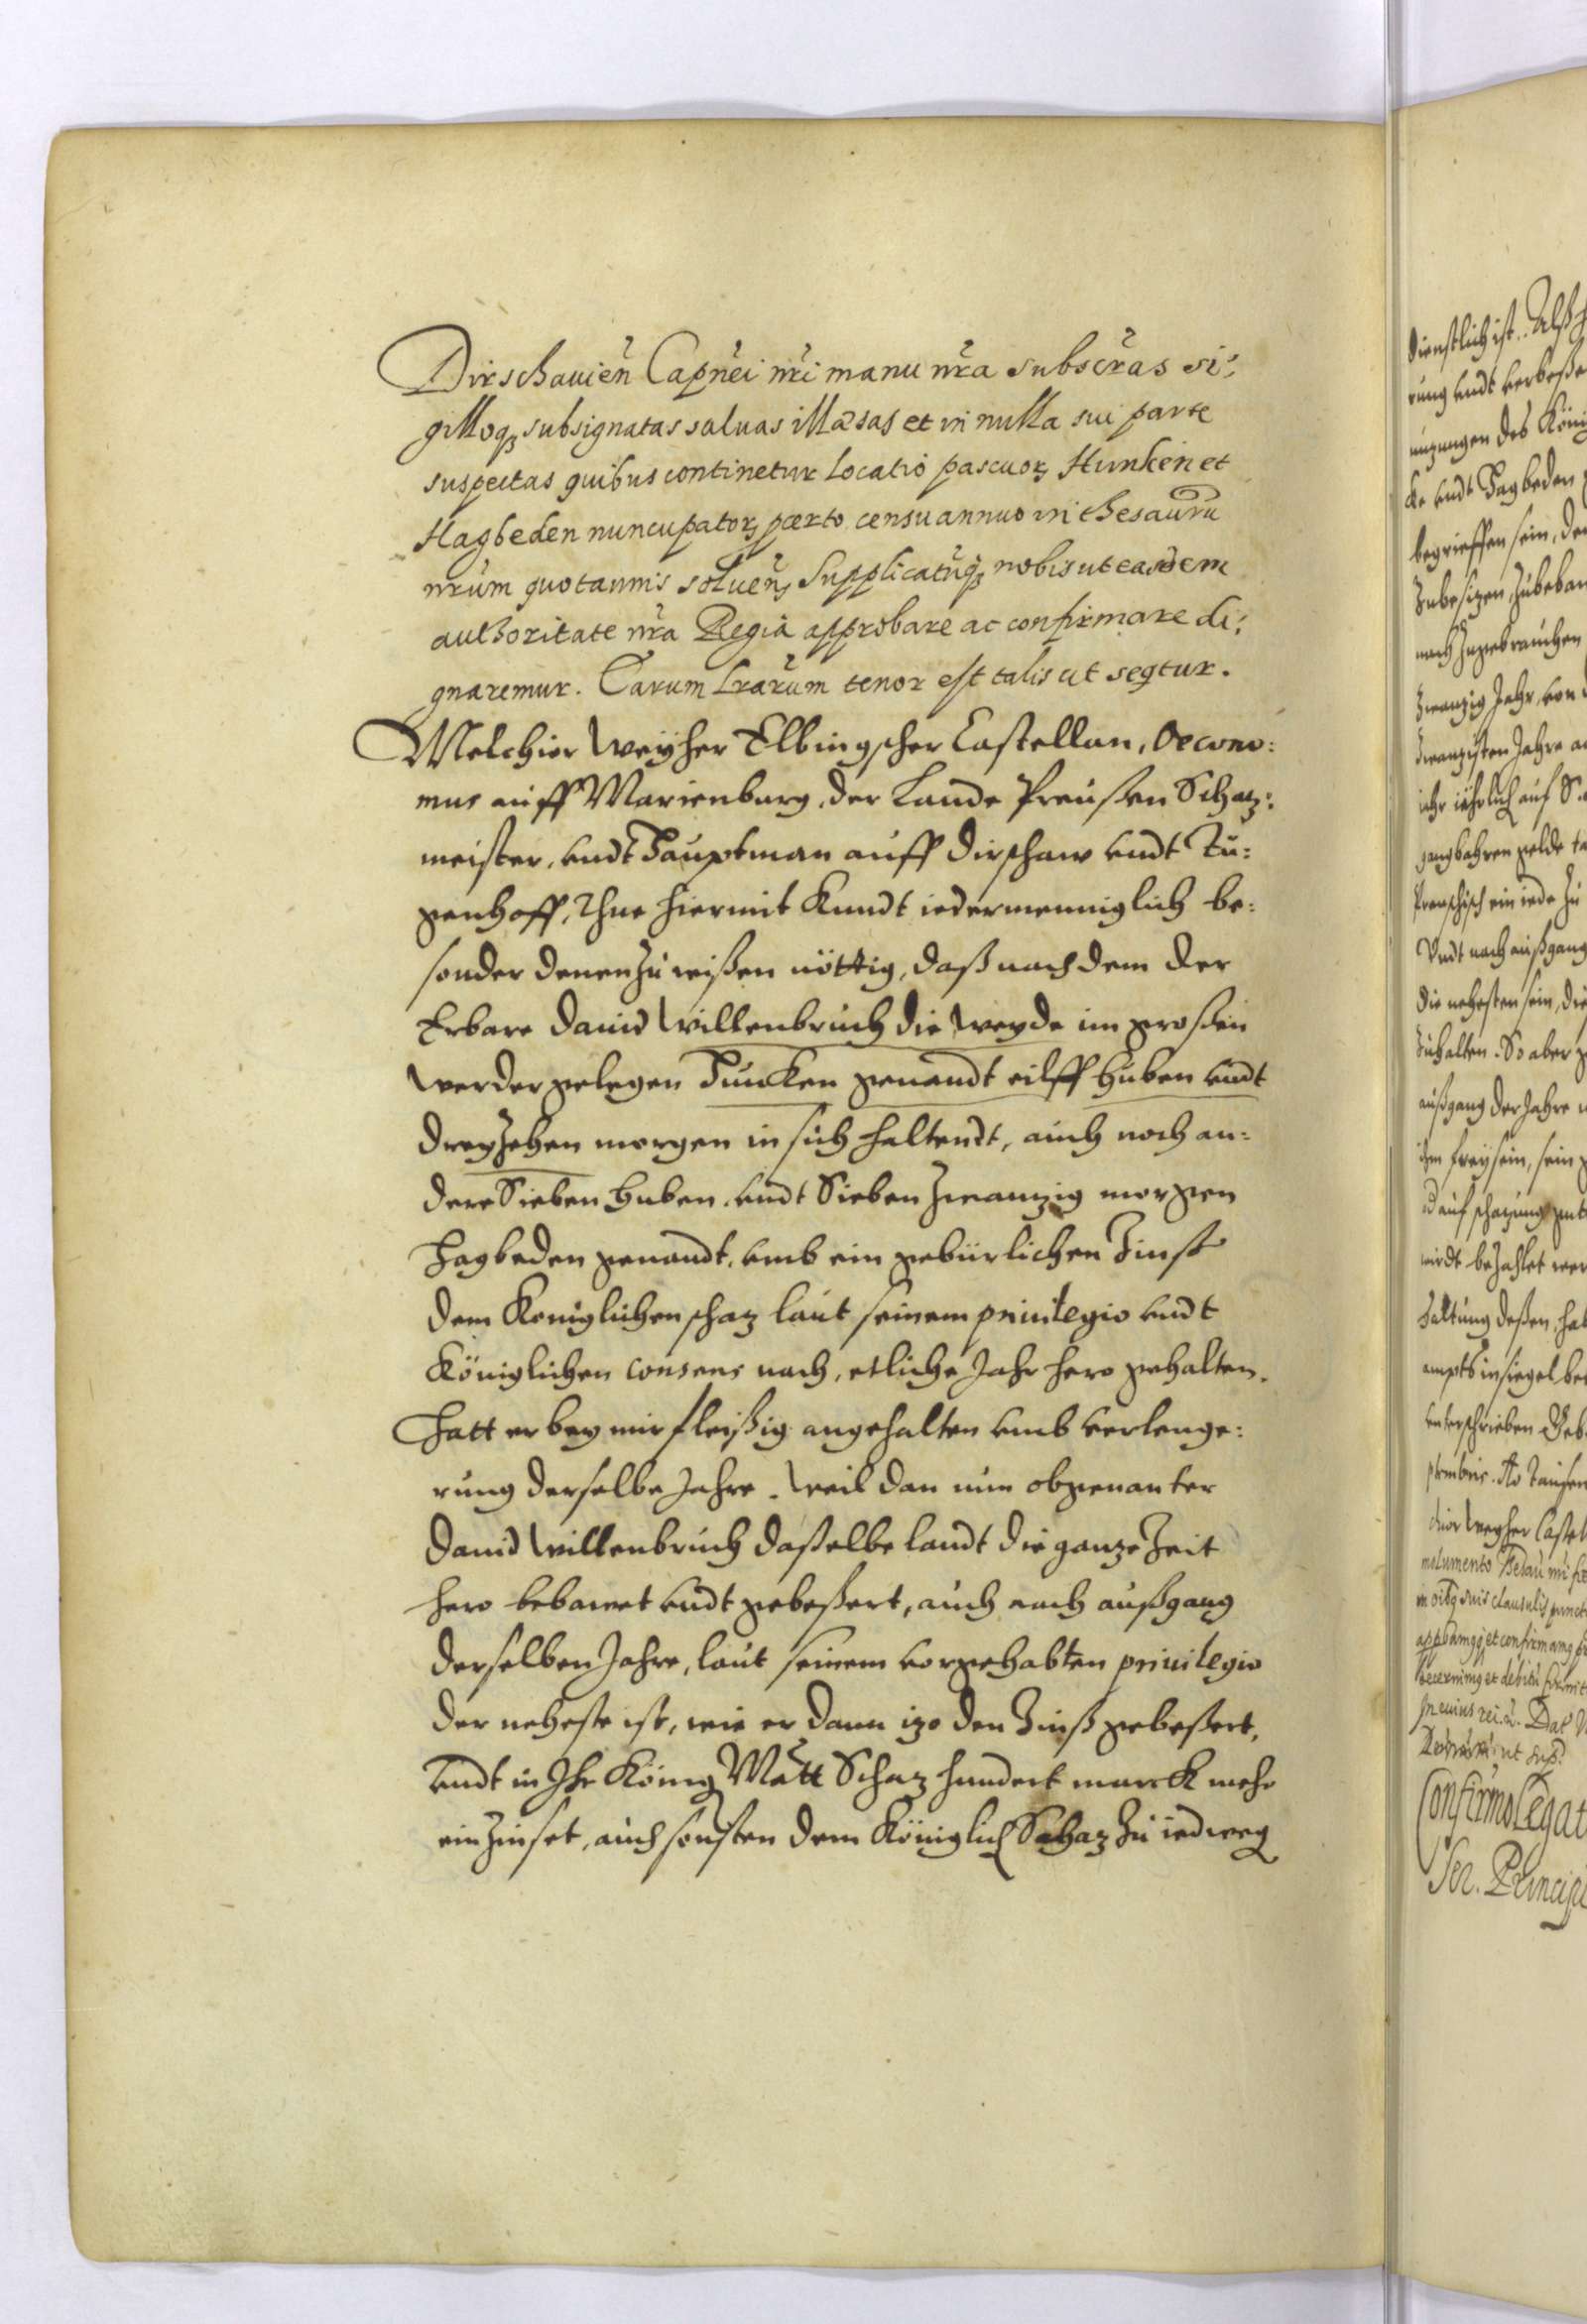 Dirschauien̄ Capn̄ei nr̄i manu nr̄a subscr̄as si:
gilloqȝ subsignatas saluas illæsas et in nulla sui parte
suspectas quibus continetur locatio pascuorȝ Hunken et
Hagbeden nuncupatorȝ certo censu annuo in thesaurū
nrūm quotannis soluenȝ Supplicatūqȝ nobis ut easdem
authoritate nr̄a Regia approbare ac confirmare di:
gnaremur. Earum Lrārum tenor est talis ut seqtur.
Melchior Weÿher Elbingscher Castellan, Oecono:
mus auff Marienburg, der Lande Preußen Schaz:
meister, vndt Hauptman auff Dirschaw vndt Tu:
genhoff, Thue hiermit Kundt iedermenniglich be:
sonder denen zu wißen nöttig, daß nach dem der
Erbare Dauid Willenbruch die Weyde im großen
Werder gelegen Huncken genandt eilff huben vndt
dreyzehen morgen in sich haltendt, auch noch an:
dere Sieben huben vndt Sieben Zwanzig morgen
Hagbeden genandt, vmb ein gebürlichen Zinß
dem Koniglichen schaz laut seinem priuilegio vndt
Königlichen consens nach, etliche Jahr hero gehalten.
Hatt er bey mir fleißig angehalten vmb verlenge:
rung derselbe Jahre. Weil dan nun obgenanter
Dauid Willenbruch daßelbe landt die ganze Zeit
hero bebawet vndt gebeßert, auch nach außgang
derselben Jahre, laut seinem vorgehabten priuilegio
der neheste ist, wie er dann izo den Zinß gebeßert,
vndt in Ihr König Mätt Schaz hundert marck mehr
ein Zinset, auch sonsten dem Königlich Schaz zu iedweg
dienstlich ist. Alß
rung vndt verbeße
nuzungen des Köni
ke vndt Hagbeden
begrieffen sein, de
Zubesizen, Zubebau
nach Zugebrauchen
Zwanzig Jahr, von
Zwanzisten Jahre a
iehr iährlich auf S.
gangbahren gelde
Preuschisch ein iede Zu
Vndt nach außgang
die nehesten sein, die
Zuhalten. So aber
außgang der Jahre
ihm frey sein, sein
auf schazung
wirdt bezahlet wer
haltung deßen, hab
ampts insiegel be
vnterschrieben Geb
ptembris. Ao Tausen
chior Weyher Castel
in oibq suis clausulis punct
et confirmamq
Confirmo Legat
Ser. Principi